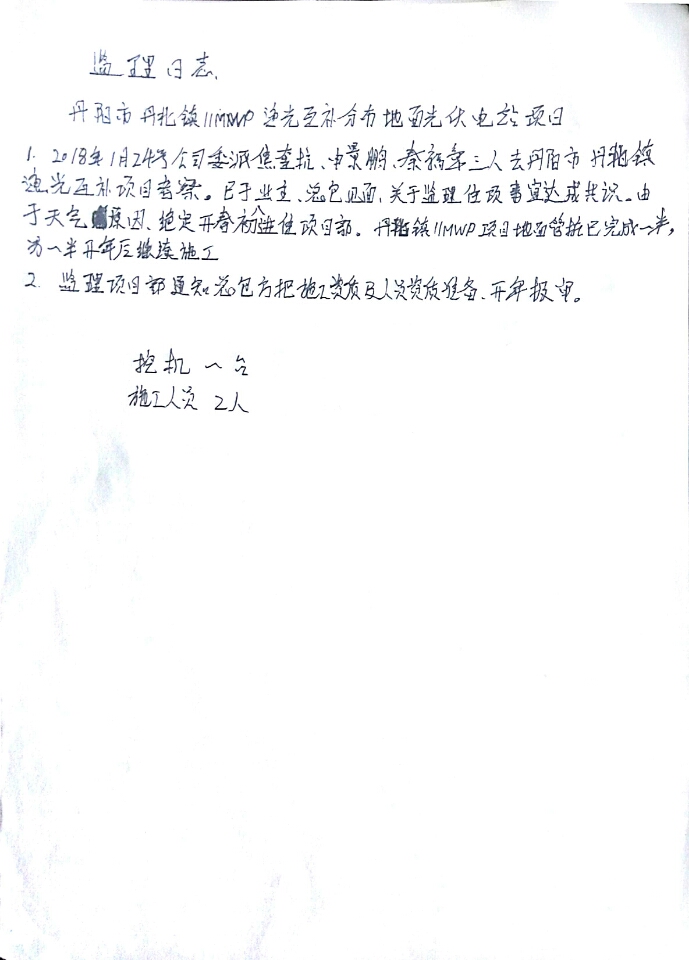 监理日志.
丹阳市丹北镇11MWP渔光互补分布地面光伏电站项目
1. 2018年1月24号公司委派焦奎抗、申景鹏、秦福第三人去丹阳市丹北镇
渔光互补项目考察。已于业主、总包见面,关于监理住项事宜达成共识。由
于天气原因,绝定开春初八进住项目部。丹北镇11MWP项目地面管桩已完成一半,
另一半开年后继续施工
2. 监理项目部通知总包方把施工资质及人员资质准备、开年报审。
挖机 一台
施工人员 2人